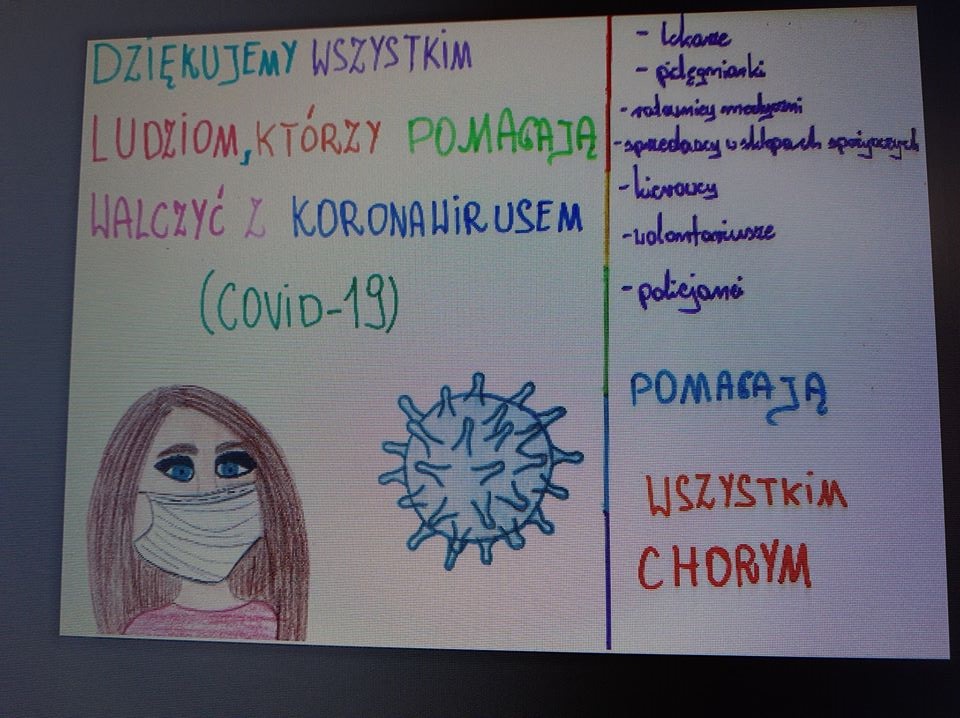 DZIĘKUJEMY WSZYSTKIM
LUDZIOM, KTÓRZY POMAGAJĄ
WALCZYĆ Z KORONAWIRUSEM
(COVID-19)
- lekarze
- pielęgniarki
- ratownicy medyczni
- sprzedawcy w sklepach spożywczych
- kierowcy
- wolontariusze
- policjanci
POMAGAJĄ
WSZYSTKIM
CHORYM